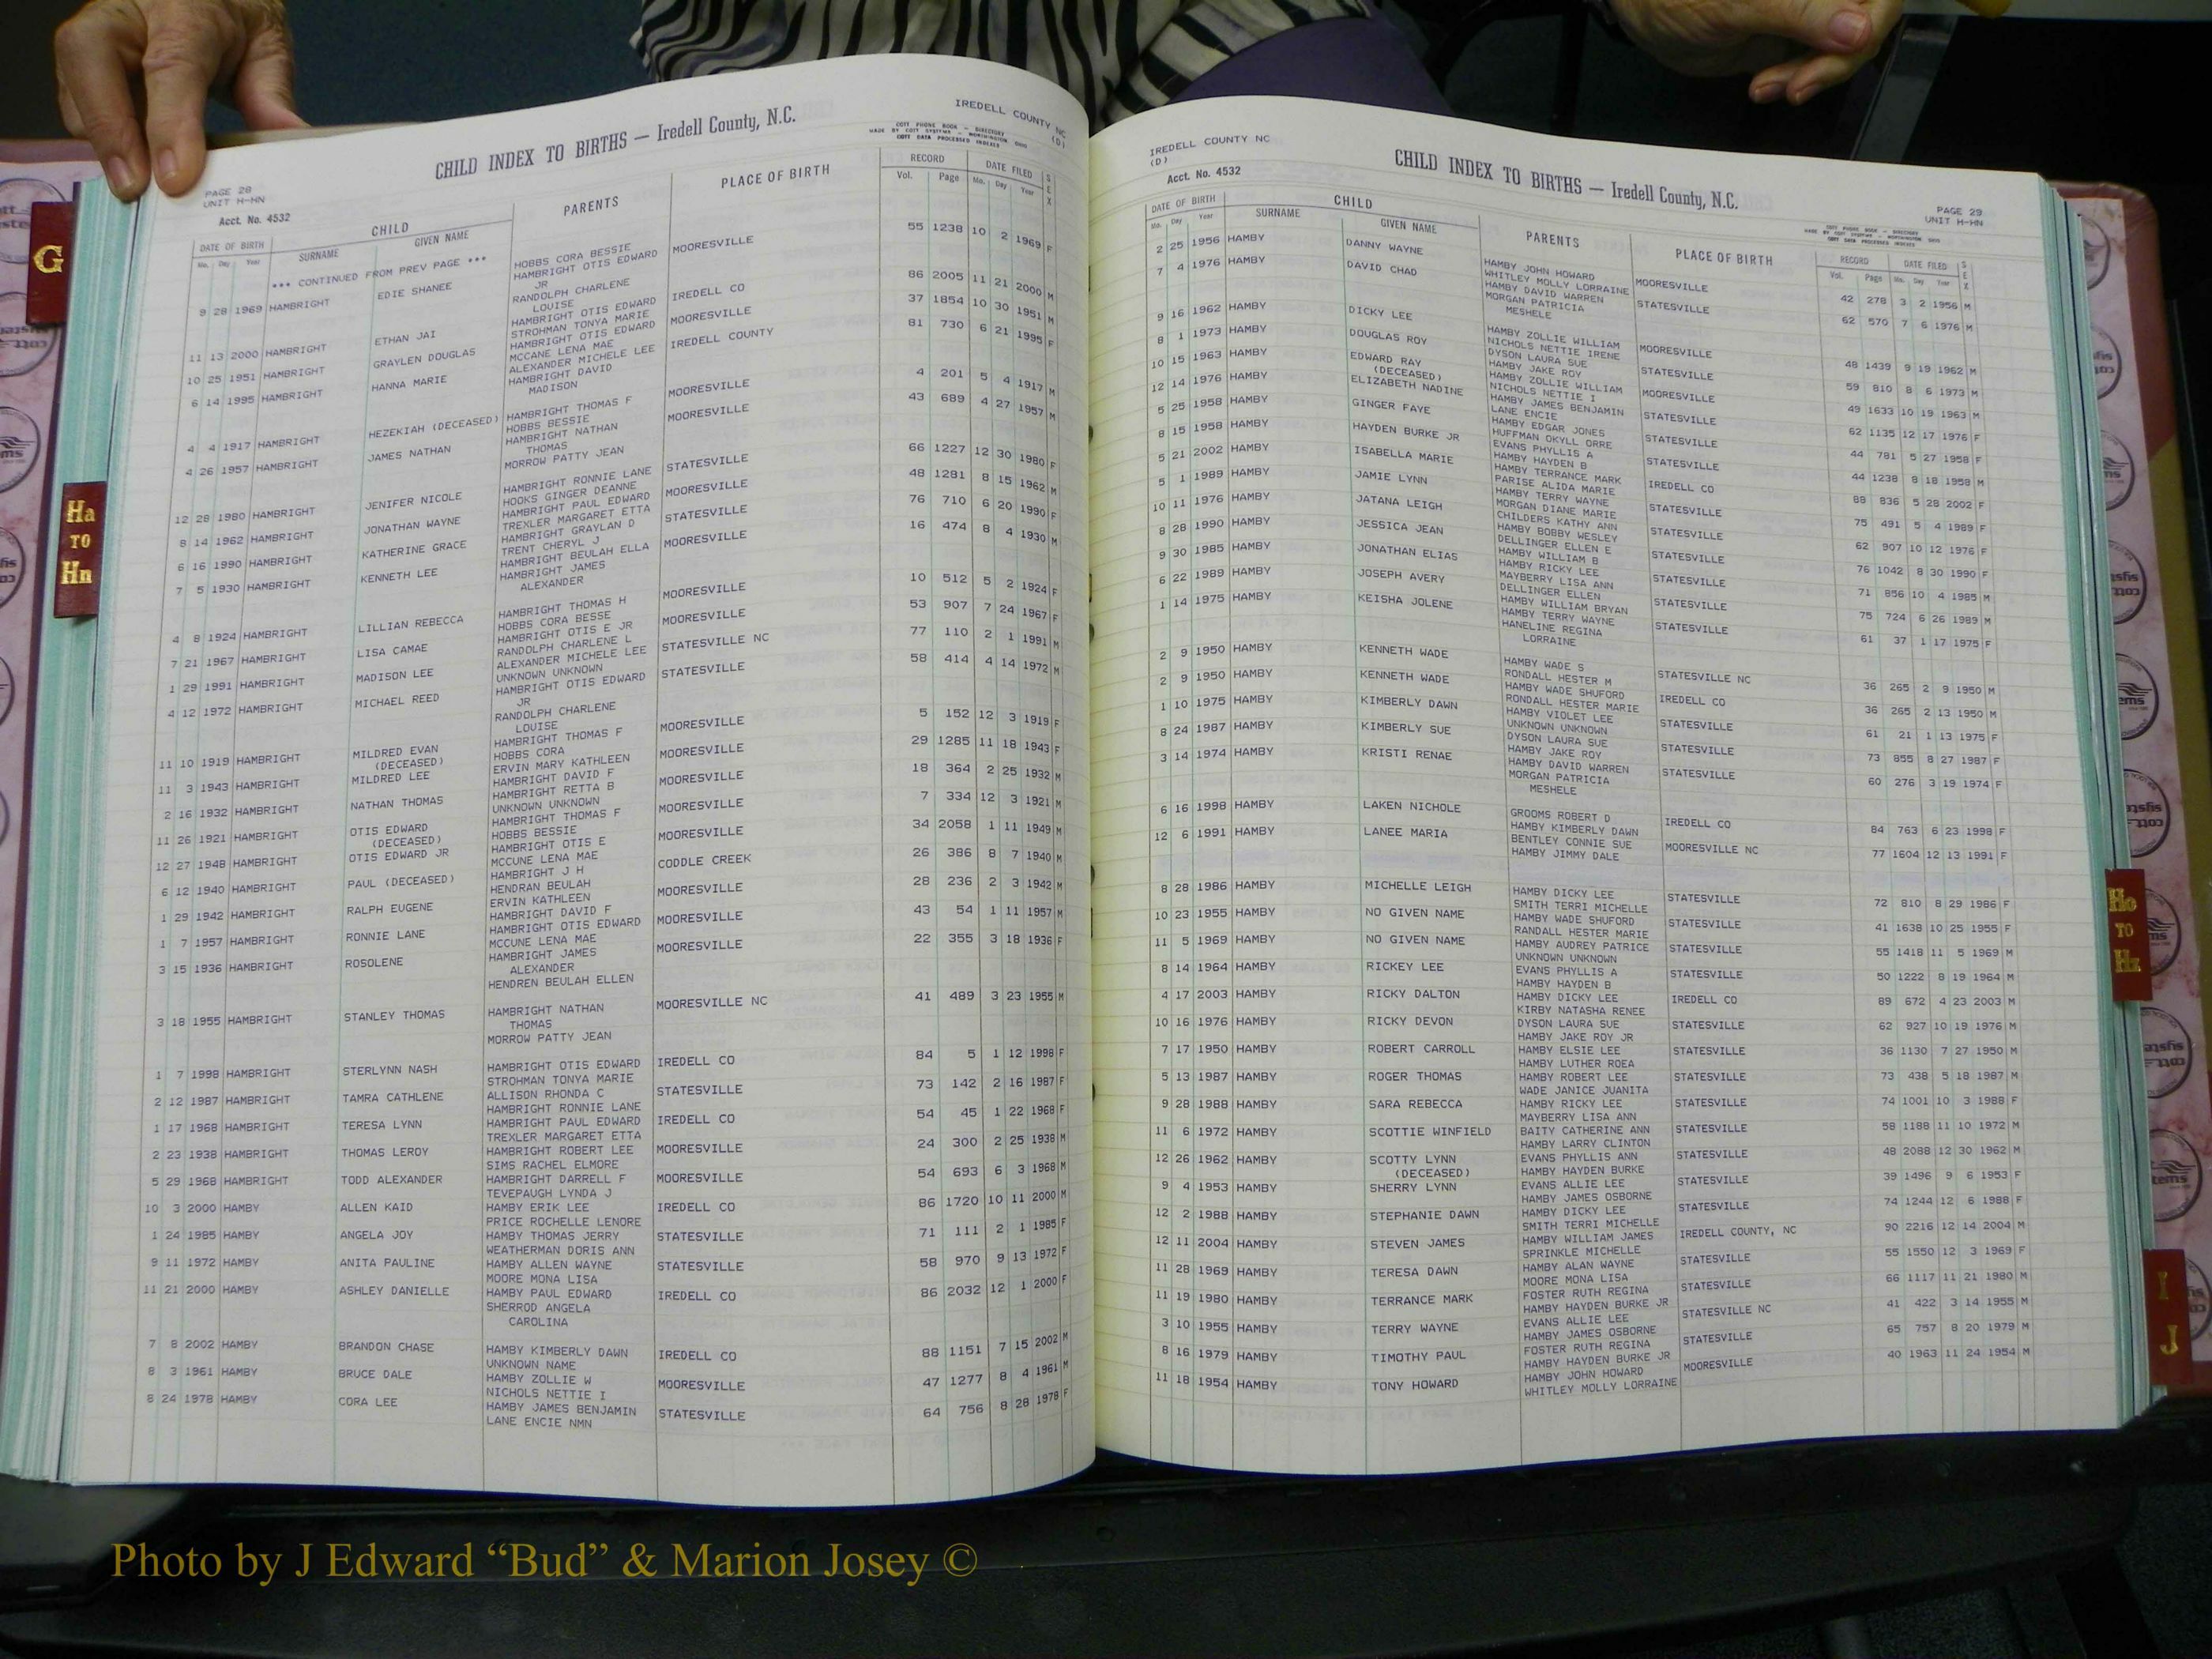 IREDELL COUNTY NC
(D)
CHILD INDEX TO BIRTHS — Iredell County, N.C.
COTT PHONE BOOK — DIRECTORY
MADE BY COTT SYSTEMS — WORTHINGTON OHIO
COTT DATA PROCESSED INDEXES
PAGE 28
UNIT H-HN
Acct. No. 4532
DATE OF BIRTH CHILD PARENTS PLACE OF BIRTH RECORD DATE FILED SEX
Mo. Day Year SURNAME GIVEN NAME Vol. Page Mo. Day Year
*** CONTINUED FROM PREV PAGE ***
9 28 1969 HAMBRIGHT EDIE SHANEE HOBBS CORA BESSIE MOORESVILLE 55 1238 10 2 1969 F
HAMBRIGHT OTIS EDWARD
JR
RANDOLPH CHARLENE
LOUISE
11 13 2000 HAMBRIGHT ETHAN JAI HAMBRIGHT OTIS EDWARD IREDELL CO 86 2005 11 21 2000 M
STROHMAN TONYA MARIE
10 25 1951 HAMBRIGHT GRAYLEN DOUGLAS HAMBRIGHT OTIS EDWARD MOORESVILLE 37 1854 10 30 1951 M
MCCANE LENA MAE
6 14 1995 HAMBRIGHT HANNA MARIE ALEXANDER MICHELE LEE IREDELL COUNTY 81 730 6 21 1995 F
HAMBRIGHT DAVID
MADISON
4 4 1917 HAMBRIGHT HEZEKIAH (DECEASED) HAMBRIGHT THOMAS F MOORESVILLE 4 201 5 4 1917 M
HOBBS BESSIE
4 26 1957 HAMBRIGHT JAMES NATHAN HAMBRIGHT NATHAN MOORESVILLE 43 689 4 27 1957 M
THOMAS
MORROW PATTY JEAN
12 28 1980 HAMBRIGHT JENIFER NICOLE HAMBRIGHT RONNIE LANE STATESVILLE 66 1227 12 30 1980 F
HOOKS GINGER DEANNE
8 14 1962 HAMBRIGHT JONATHAN WAYNE HAMBRIGHT PAUL EDWARD MOORESVILLE 48 1281 8 15 1962 M
TREXLER MARGARET ETTA
6 16 1990 HAMBRIGHT KATHERINE GRACE HAMBRIGHT GRAYLAN D STATESVILLE 76 710 6 20 1990 F
TRENT CHERYL J
7 5 1930 HAMBRIGHT KENNETH LEE HAMBRIGHT BEULAH ELLA MOORESVILLE 16 474 8 4 1930 M
HAMBRIGHT JAMES
ALEXANDER
4 8 1924 HAMBRIGHT LILLIAN REBECCA HAMBRIGHT THOMAS H MOORESVILLE 10 512 5 2 1924 F
HOBBS CORA BESSE
7 21 1967 HAMBRIGHT LISA CAMAE HAMBRIGHT OTIS E JR MOORESVILLE 53 907 7 24 1967 F
RANDOLPH CHARLENE L
1 29 1991 HAMBRIGHT MADISON LEE ALEXANDER MICHELE LEE STATESVILLE NC 77 110 2 1 1991 M
UNKNOWN UNKNOWN
4 12 1972 HAMBRIGHT MICHAEL REED HAMBRIGHT OTIS EDWARD STATESVILLE 58 414 4 14 1972 M
JR
RANDOLPH CHARLENE
LOUISE
11 10 1919 HAMBRIGHT MILDRED EVAN HAMBRIGHT THOMAS F MOORESVILLE 5 152 12 3 1919 F
(DECEASED) HOBBS CORA
11 3 1943 HAMBRIGHT MILDRED LEE ERVIN MARY KATHLEEN MOORESVILLE 29 1285 11 18 1943 F
HAMBRIGHT DAVID F
2 16 1932 HAMBRIGHT NATHAN THOMAS HAMBRIGHT RETTA B MOORESVILLE 18 364 2 25 1932 M
UNKNOWN UNKNOWN
11 26 1921 HAMBRIGHT OTIS EDWARD HAMBRIGHT THOMAS F MOORESVILLE 7 334 12 3 1921 M
(DECEASED) HOBBS BESSIE
12 27 1948 HAMBRIGHT OTIS EDWARD JR HAMBRIGHT OTIS E MOORESVILLE 34 2058 1 11 1949 M
MCCUNE LENA MAE
6 12 1940 HAMBRIGHT PAUL (DECEASED) HAMBRIGHT J H CODDLE CREEK 26 386 8 7 1940 M
HENDRAN BEULAH
1 29 1942 HAMBRIGHT RALPH EUGENE ERVIN KATHLEEN MOORESVILLE 28 236 2 3 1942 M
HAMBRIGHT DAVID F
1 7 1957 HAMBRIGHT RONNIE LANE HAMBRIGHT OTIS EDWARD MOORESVILLE 43 54 1 11 1957 M
MCCUNE LENA MAE
3 15 1936 HAMBRIGHT ROSOLENE HAMBRIGHT JAMES MOORESVILLE 22 355 3 18 1936 F
ALEXANDER
HENDREN BEULAH ELLEN
3 18 1955 HAMBRIGHT STANLEY THOMAS HAMBRIGHT NATHAN MOORESVILLE NC 41 489 3 23 1955 M
THOMAS
MORROW PATTY JEAN
1 7 1998 HAMBRIGHT STERLYNN NASH HAMBRIGHT OTIS EDWARD IREDELL CO 84 5 1 12 1998 F
STROHMAN TONYA MARIE
2 12 1987 HAMBRIGHT TAMRA CATHLENE ALLISON RHONDA C STATESVILLE 73 142 2 16 1987 F
HAMBRIGHT RONNIE LANE
1 17 1968 HAMBRIGHT TERESA LYNN HAMBRIGHT PAUL EDWARD IREDELL CO 54 45 1 22 1968 F
TREXLER MARGARET ETTA
2 23 1938 HAMBRIGHT THOMAS LEROY HAMBRIGHT ROBERT LEE MOORESVILLE 24 300 2 25 1938 M
SIMS RACHEL ELMORE
5 29 1968 HAMBRIGHT TODD ALEXANDER HAMBRIGHT DARRELL F MOORESVILLE 54 693 6 3 1968 M
TEVEPAUGH LYNDA J
10 3 2000 HAMBY ALLEN KAID HAMBY ERIK LEE IREDELL CO 86 1720 10 11 2000 M
PRICE ROCHELLE LENORE
1 24 1985 HAMBY ANGELA JOY HAMBY THOMAS JERRY STATESVILLE 71 111 2 1 1985 F
WEATHERMAN DORIS ANN
9 11 1972 HAMBY ANITA PAULINE HAMBY ALLEN WAYNE STATESVILLE 58 970 9 13 1972 F
MOORE MONA LISA
11 21 2000 HAMBY ASHLEY DANIELLE HAMBY PAUL EDWARD IREDELL CO 86 2032 12 1 2000 F
SHERROD ANGELA
CAROLINA
7 8 2002 HAMBY BRANDON CHASE HAMBY KIMBERLY DAWN IREDELL CO 88 1151 7 15 2002 M
UNKNOWN NAME
8 3 1961 HAMBY BRUCE DALE HAMBY ZOLLIE W MOORESVILLE 47 1277 8 4 1961 M
NICHOLS NETTIE I
8 24 1978 HAMBY CORA LEE HAMBY JAMES BENJAMIN STATESVILLE 64 756 8 28 1978 F
LANE ENCIE NMN
IREDELL COUNTY NC
(D)
Acct. No. 4532
CHILD INDEX TO BIRTHS — Iredell County, N.C.
PAGE 29
UNIT H-HN
COTT PHONE BOOK — DIRECTORY
MADE BY COTT SYSTEMS — WORTHINGTON OHIO
COTT DATA PROCESSED INDEXES
DATE OF BIRTH CHILD PARENTS PLACE OF BIRTH RECORD DATE FILED SEX
Mo. Day Year SURNAME GIVEN NAME Vol. Page Mo. Day Year
2 25 1956 HAMBY DANNY WAYNE HAMBY JOHN HOWARD MOORESVILLE 42 278 3 2 1956 M
WHITLEY MOLLY LORRAINE
7 4 1976 HAMBY DAVID CHAD HAMBY DAVID WARREN STATESVILLE 62 570 7 6 1976 M
MORGAN PATRICIA
MESHELE
9 16 1962 HAMBY DICKY LEE HAMBY ZOLLIE WILLIAM MOORESVILLE 48 1439 9 19 1962 M
NICHOLS NETTIE IRENE
8 1 1973 HAMBY DOUGLAS ROY DYSON LAURA SUE STATESVILLE 59 810 8 6 1973 M
HAMBY JAKE ROY
10 15 1963 HAMBY EDWARD RAY HAMBY ZOLLIE WILLIAM MOORESVILLE 49 1633 10 19 1963 M
(DECEASED) NICHOLS NETTIE I
12 14 1976 HAMBY ELIZABETH NADINE HAMBY JAMES BENJAMIN STATESVILLE 62 1135 12 17 1976 F
LANE ENCIE
5 25 1958 HAMBY GINGER FAYE HAMBY EDGAR JONES STATESVILLE 44 781 5 27 1958 F
HUFFMAN OKYLL ORRE
8 15 1958 HAMBY HAYDEN BURKE JR EVANS PHYLLIS A STATESVILLE 44 1238 8 18 1958 M
HAMBY HAYDEN B
5 21 2002 HAMBY ISABELLA MARIE HAMBY TERRANCE MARK IREDELL CO 88 836 5 28 2002 F
PARISE ALIDA MARIE
5 1 1989 HAMBY JAMIE LYNN HAMBY TERRY WAYNE STATESVILLE 75 491 5 4 1989 F
MORGAN DIANE MARIE
10 11 1976 HAMBY JATANA LEIGH CHILDERS KATHY ANN STATESVILLE 62 907 10 12 1976 F
HAMBY BOBBY WESLEY
8 28 1990 HAMBY JESSICA JEAN DELLINGER ELLEN E STATESVILLE 76 1042 8 30 1990 F
HAMBY WILLIAM B
9 30 1985 HAMBY JONATHAN ELIAS HAMBY RICKY LEE STATESVILLE 71 856 10 4 1985 M
MAYBERRY LISA ANN
6 22 1989 HAMBY JOSEPH AVERY DELLINGER ELLEN STATESVILLE 75 724 6 26 1989 M
HAMBY WILLIAM BRYAN
1 14 1975 HAMBY KEISHA JOLENE HAMBY TERRY WAYNE STATESVILLE 61 37 1 17 1975 F
HANELINE REGINA
LORRAINE
2 9 1950 HAMBY KENNETH WADE HAMBY WADE S STATESVILLE NC 36 265 2 9 1950 M
RONDALL HESTER M
2 9 1950 HAMBY KENNETH WADE HAMBY WADE SHUFORD IREDELL CO 36 265 2 13 1950 M
RONDALL HESTER MARIE
1 10 1975 HAMBY KIMBERLY DAWN HAMBY VIOLET LEE STATESVILLE 61 21 1 13 1975 F
UNKNOWN UNKNOWN
8 24 1987 HAMBY KIMBERLY SUE DYSON LAURA SUE STATESVILLE 73 855 8 27 1987 F
HAMBY JAKE ROY
3 14 1974 HAMBY KRISTI RENAE HAMBY DAVID WARREN STATESVILLE 60 276 3 19 1974 F
MORGAN PATRICIA
MESHELE
6 16 1998 HAMBY LAKEN NICHOLE GROOMS ROBERT D IREDELL CO 84 763 6 23 1998 F
HAMBY KIMBERLY DAWN
12 6 1991 HAMBY LANEE MARIA BENTLEY CONNIE SUE MOORESVILLE NC 77 1604 12 13 1991 F
HAMBY JIMMY DALE
8 28 1986 HAMBY MICHELLE LEIGH HAMBY DICKY LEE STATESVILLE 72 810 8 29 1986 F
SMITH TERRI MICHELLE
10 23 1955 HAMBY NO GIVEN NAME HAMBY WADE SHUFORD STATESVILLE 41 1638 10 25 1955 F
RANDALL HESTER MARIE
11 5 1969 HAMBY NO GIVEN NAME HAMBY AUDREY PATRICE STATESVILLE 55 1418 11 5 1969 M
UNKNOWN UNKNOWN
8 14 1964 HAMBY RICKEY LEE EVANS PHYLLIS A STATESVILLE 50 1222 8 19 1964 M
HAMBY HAYDEN B
4 17 2003 HAMBY RICKY DALTON HAMBY DICKY LEE IREDELL CO 89 672 4 23 2003 M
KIRBY NATASHA RENEE
10 16 1976 HAMBY RICKY DEVON DYSON LAURA SUE STATESVILLE 62 927 10 19 1976 M
HAMBY JAKE ROY JR
7 17 1950 HAMBY ROBERT CARROLL HAMBY ELSIE LEE STATESVILLE 36 1130 7 27 1950 M
HAMBY LUTHER ROEA
5 13 1987 HAMBY ROGER THOMAS HAMBY ROBERT LEE STATESVILLE 73 438 5 18 1987 M
WADE JANICE JUANITA
9 28 1988 HAMBY SARA REBECCA HAMBY RICKY LEE STATESVILLE 74 1001 10 3 1988 F
MAYBERRY LISA ANN
11 6 1972 HAMBY SCOTTIE WINFIELD BAITY CATHERINE ANN STATESVILLE 58 1188 11 10 1972 M
HAMBY LARRY CLINTON
12 26 1962 HAMBY SCOTTY LYNN EVANS PHYLLIS ANN STATESVILLE 48 2088 12 30 1962 M
(DECEASED) HAMBY HAYDEN BURKE
9 4 1953 HAMBY SHERRY LYNN EVANS ALLIE LEE STATESVILLE 39 1496 9 6 1953 F
HAMBY JAMES OSBORNE
12 2 1988 HAMBY STEPHANIE DAWN HAMBY DICKY LEE STATESVILLE 74 1244 12 6 1988 F
SMITH TERRI MICHELLE
12 11 2004 HAMBY STEVEN JAMES HAMBY WILLIAM JAMES IREDELL COUNTY, NC 90 2216 12 14 2004 M
SPRINKLE MICHELLE
11 28 1969 HAMBY TERESA DAWN HAMBY ALAN WAYNE STATESVILLE 55 1550 12 3 1969 F
MOORE MONA LISA
11 19 1980 HAMBY TERRANCE MARK FOSTER RUTH REGINA STATESVILLE 66 1117 11 21 1980 M
HAMBY HAYDEN BURKE JR
3 10 1955 HAMBY TERRY WAYNE EVANS ALLIE LEE STATESVILLE NC 41 422 3 14 1955 M
HAMBY JAMES OSBORNE
8 16 1979 HAMBY TIMOTHY PAUL FOSTER RUTH REGINA STATESVILLE 65 757 8 20 1979 M
HAMBY HAYDEN BURKE JR
11 18 1954 HAMBY TONY HOWARD HAMBY JOHN HOWARD MOORESVILLE 40 1963 11 24 1954 M
WHITLEY MOLLY LORRAINE
G
Ha
TO
Hn
Ho
TO
Hz
I
J
Photo by J Edward “Bud” & Marion Josey ©